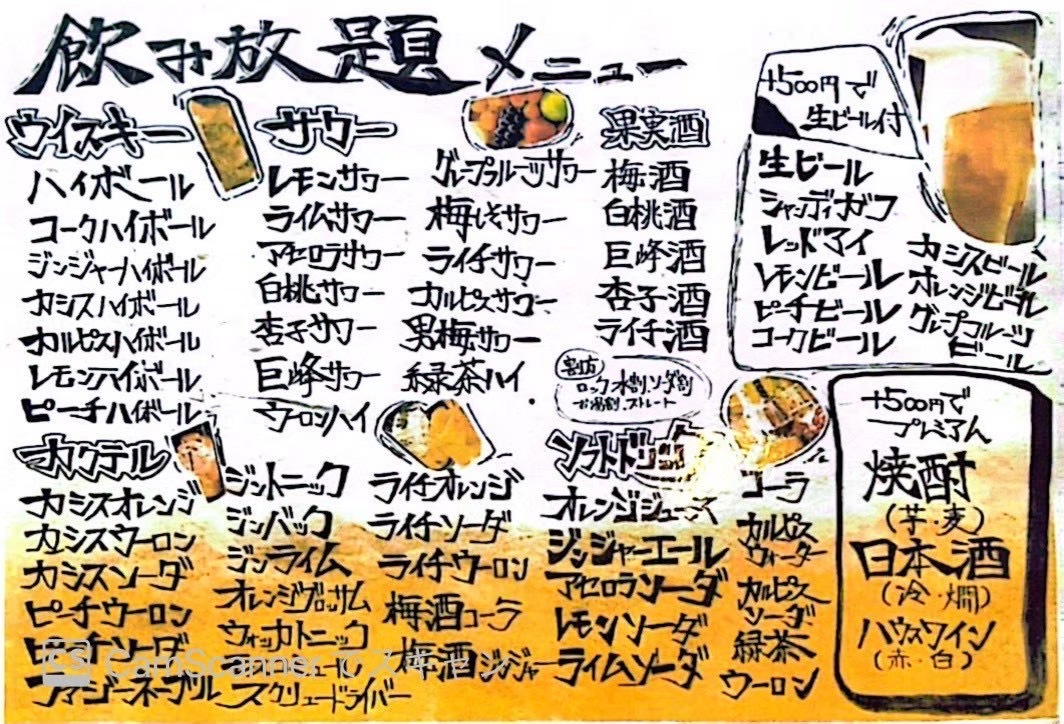 飲み放題メニュー
ウイスキー
ハイボール
コークハイボール
ジンジャーハイボール
カシスハイボール
カルピスハイボール
レモンハイボール
ピーチハイボール
サワー
レモンサワー
ライムサワー
アセロラサワー
白桃サワー
杏子サワー
巨峰サワー
ウーロンハイ
グレープフルーツサワー
梅しそサワー
ライチサワー
カルピスサワー
男梅サワー
緑茶ハイ
果実酒
梅酒
白桃酒
巨峰酒
杏子酒
ライチ酒
ロック、水割、ソーダ割
お湯割、ストレート
+500円で
生ビール付
生ビール
シャンディガフ
レッドアイ
レモンビール
ピーチビール
コークビール
カシスビール
オレンジビール
グレープフルーツ
ビール
カクテル
カシスオレンジ
カシスウーロン
カシスソーダ
ピーチウーロン
ピーチソーダ
ファジーネーブル
ジントニック
ジンバック
ジンライム
オレンジブロッサム
ウォッカトニック
スクリュードライバー
ライチオレンジ
ライチソーダ
ライチウーロン
梅酒コーラ
梅酒ジンジャー
ソフトドリンク
オレンジジュース
ジンジャーエール
アセロラソーダ
レモンソーダ
ライムソーダ
コーラ
カルピス
ウォーター
カルピス
ソーダ
緑茶
ウーロン
+500円で
プレミアム
焼酎
(芋・麦)
日本酒
(冷・燗)
ハウスワイン
(赤・白)
CS CamScannerでスキャン